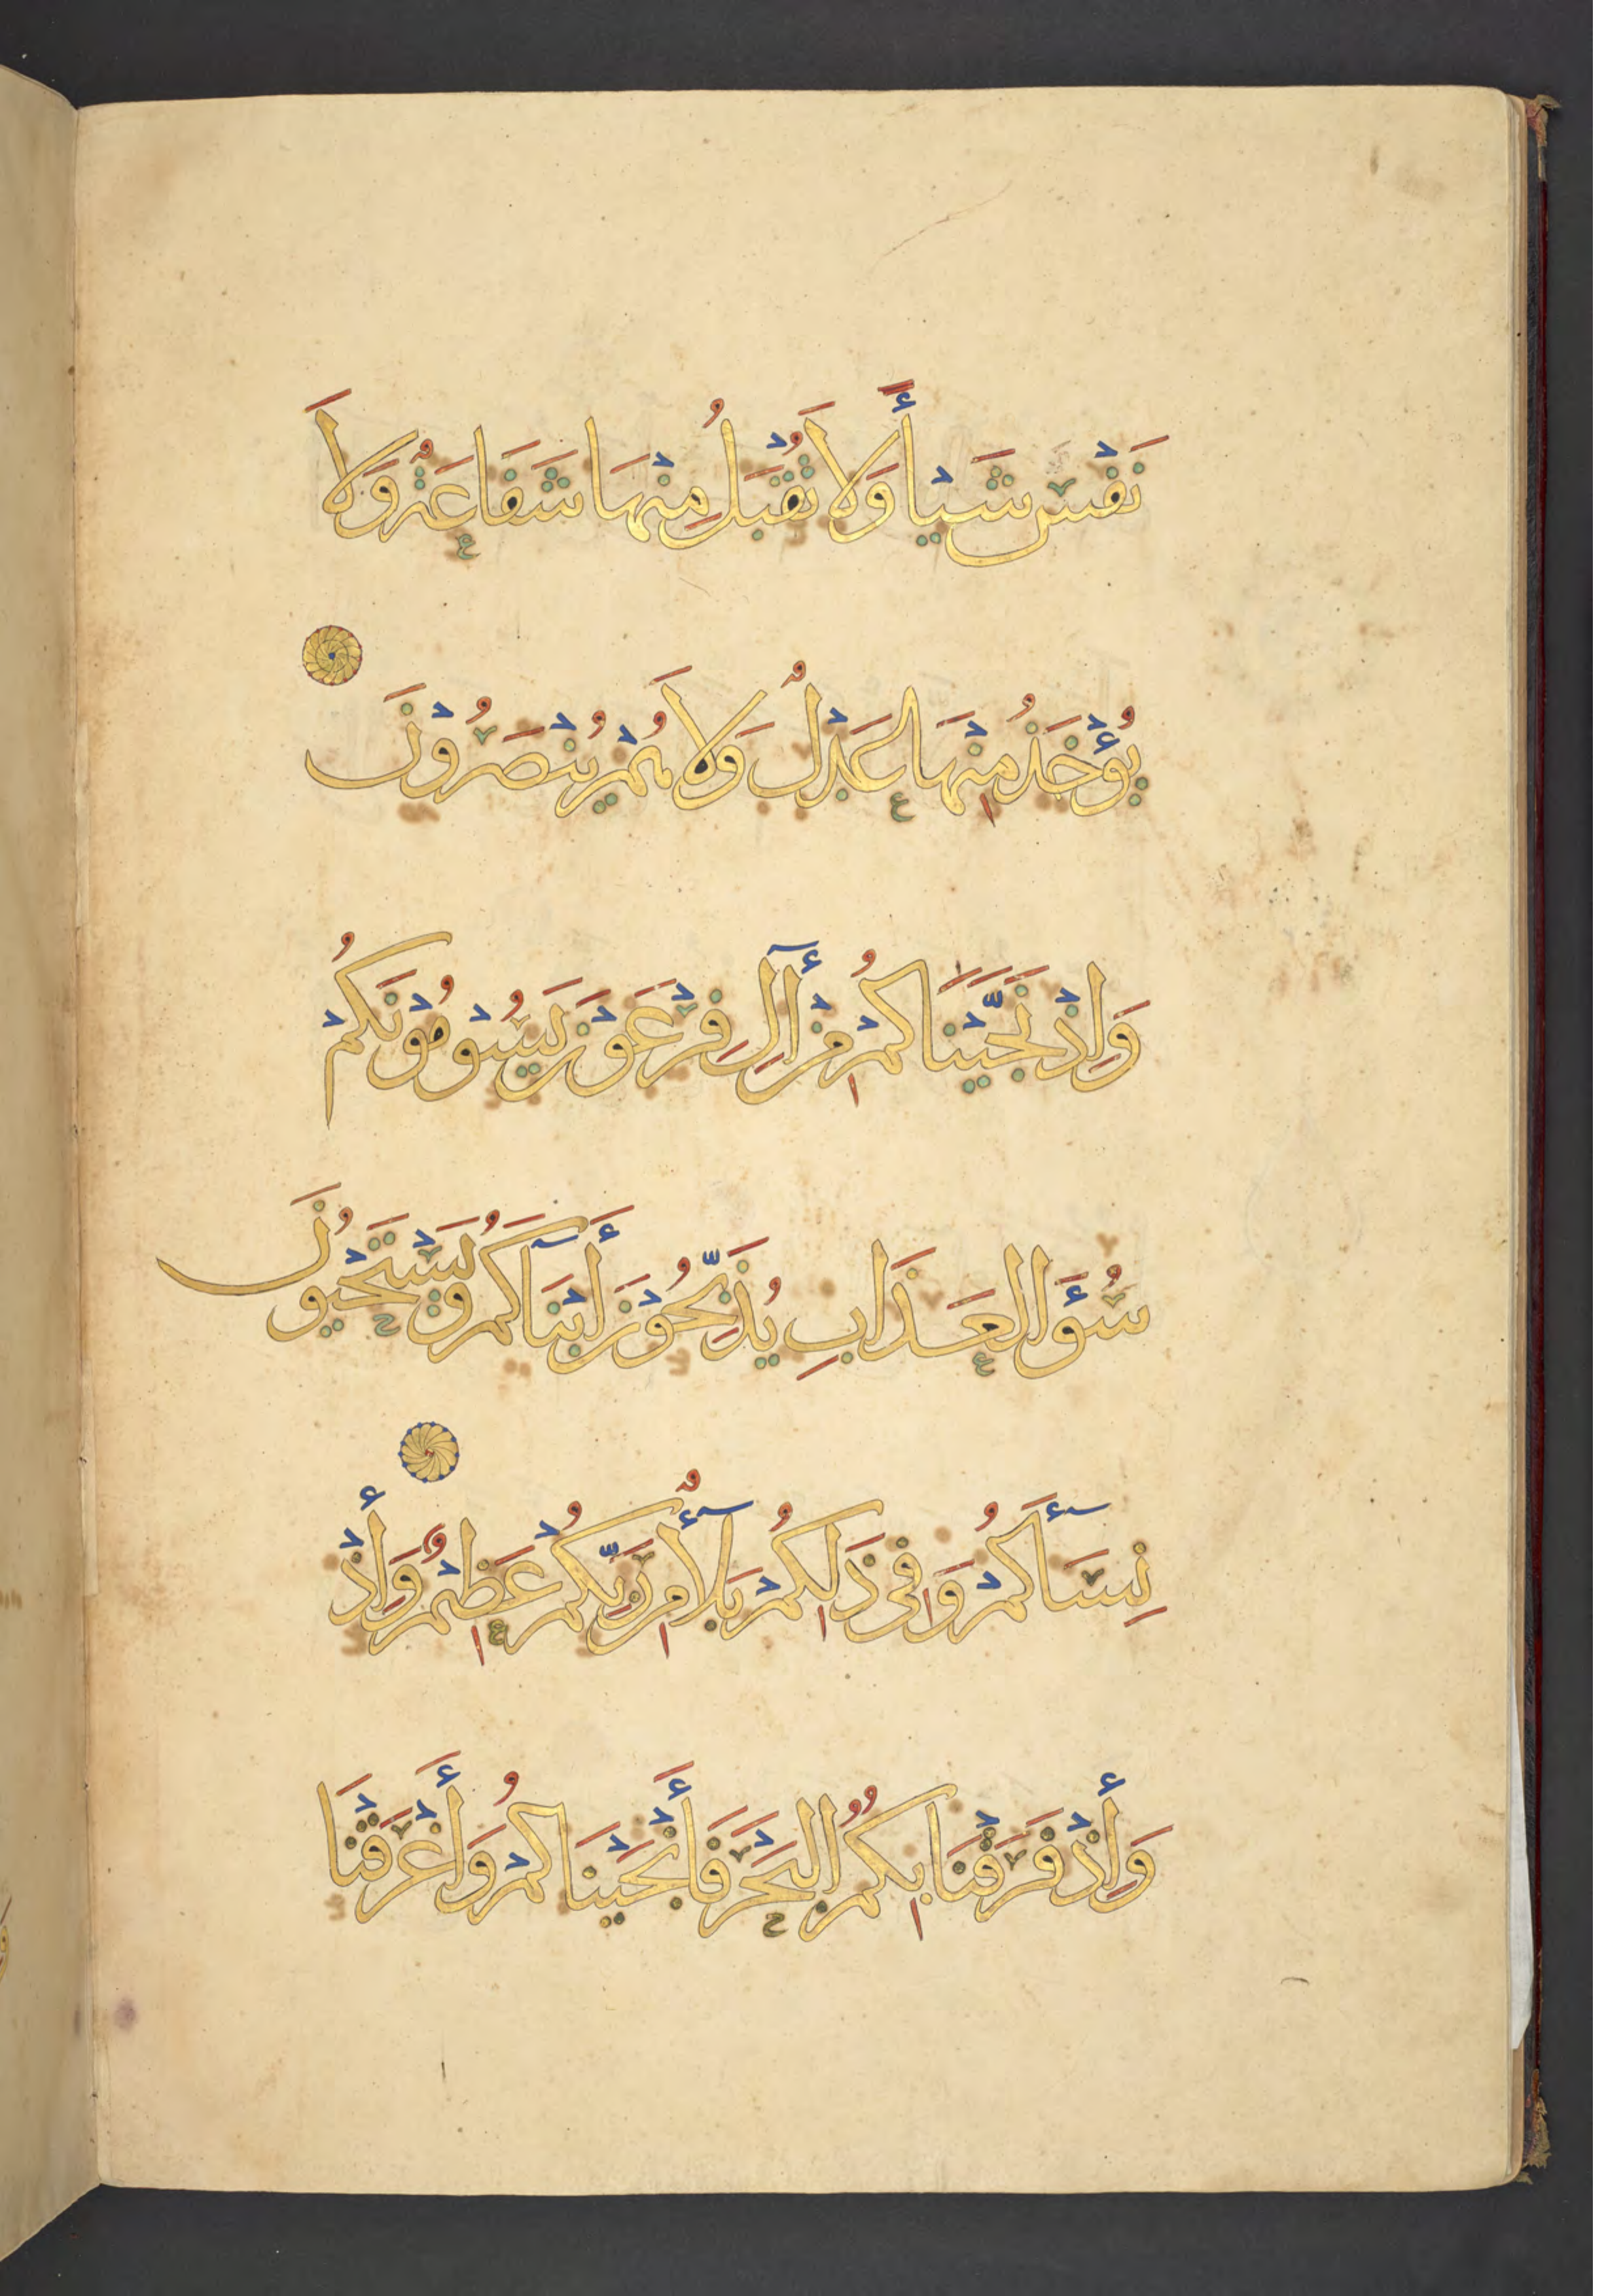 نَفْسٍ شَيْـًٔا وَلَا تُقْبَلُ مِنْهَا شَفَاعَةٌ وَلَا
يُؤْخَذُ مِنْهَا عَدْلٌ وَلَا هُمْ يُنْصَرُوْنَ
وَاِذْ نَجَّيْنَاكُمْ مِنْ أٓلِ فِرْعَوْنَ يَسُوْمُوْنَكُمْ
سُؤَ الْعَذَابِ يُذَبِّحُوْنَ أَبْنَآكُمْ وَيَسْتَحْيُوْنَ
نِسَآءَكُمْ وَفِي ذَلِكُمْ بَلَآءٌ مِنْ رَبِّكُمْ عَظِيْمٌ وَإِذْ
وَإِذْ فَرَقْنَا بِكُمُ الْبَحْرَ فَأَنْجَيْنَاكُمْ وَأَغْرَقْنَا